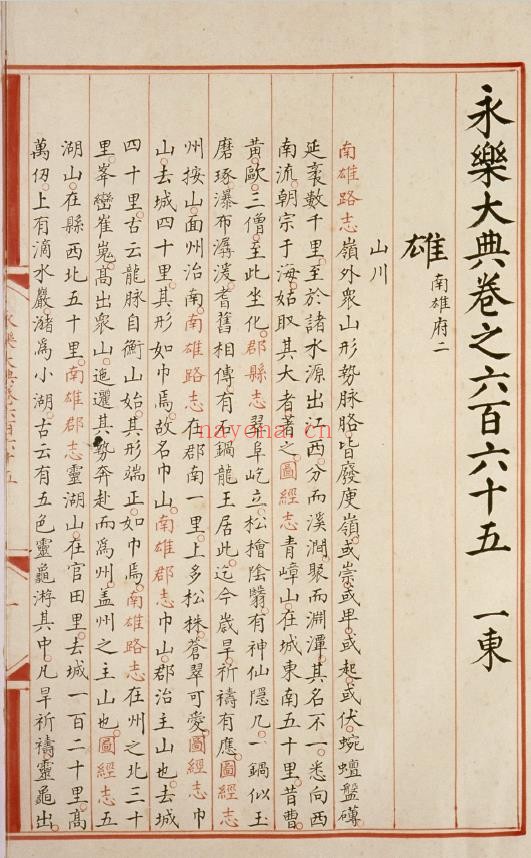 永樂大典卷之六百六十五 一東
雄 南雄府二
山川
南雄路志嶺外衆山形勢脉胳皆廢庾嶺或崇或卑或起或伏蜿蟺盤礴
延袤數千里至於諸水源出江西分而溪澗聚而淵潭其名不一悉向西
南流朝宗于海姑取其大者著之圖經志青嶂山在城東南五十里昔曹
黄歐三僧至此坐化郡縣志翠阜屹立松檜陰翳有神仙隱几一鍋似玉
磨琢瀑布潺湲耆舊相傳有石鍋龍王居此迄今歲旱祈禱有應圖經志
州按山面州治南南雄路志在郡南一里上多松株蒼翠可愛圖經志巾
山去城四十里其形如巾焉故名巾山南雄郡志巾山郡治主山也去城
四十里古云龍脉自衡山始其形端正如巾焉南雄路志在州之北三十
里峯巒崔嵬高出衆山迤邐其勢奔赴而爲州盖州之主山也圖經志五
湖山在縣西北五十里南雄郡志靈湖山在官田里去城一百二十里高
萬仭上有滴水巖潴爲小湖古云有五色靈龜游其中凡旱祈禱靈龜出
永樂大典卷六百六十五
一
nayonai cn